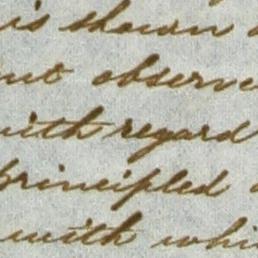 is shown
observe
with regard
principled
with whi